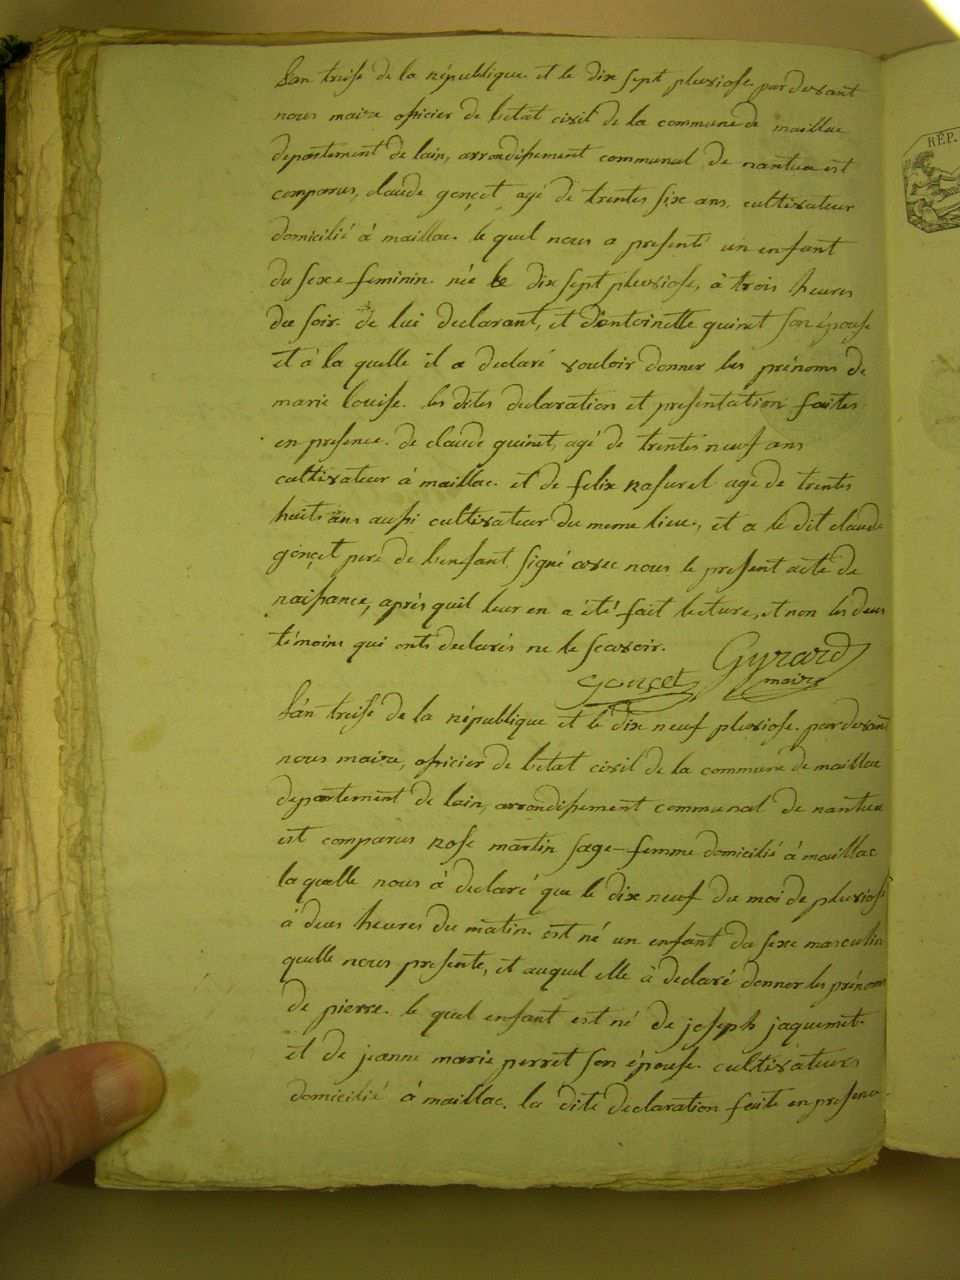 L'an treise de la république et le dix sept pluviose. par devant
nous maire officier de l'etat civil de la commune de maillac
departement de lain, arrondissement communal de nantua est
comparus, claude gonçet agé de trentes six ans. cultivateur
domicilié à maillac. le quel nous a presenté un enfant
du sexe feminin. née le dix sept pluviose, à trois heures
du soir. de lui declarant, et d'entoinette guinet son épouse
et à la quelle il a declaré vouloir donner les prénoms de
marie louise. les dites declaration et presentation faites
en presence. de claude guinet, agé de trentes neuf ans
cultivateur à maillac. et de felix rasurel agé de trentes
huits ans aussi cultivateur du meme lieu, et a le dit claude
gonçet pere de l'enfant signé avec nous le present acte de
naissance, après quil leur en a été fait lecture, et non les deus
témoins qui onts declarés ne le scavoir.
Gyrard
Gonçet maire
L'an treise de la république et le dix neuf pluviose. par devant
nous maire, officier de l'etat civil de la commune de maillac
departement de lain, arrondissement communal de nantua
est comparus rose martin sage-femme domicilié à maillac
laquelle nous à declaré que le dix neuf du moi de pluviose
à deus heures du matin est né un enfant du sexe masculin
quelle nous presente, et auquel elle à declaré donner les prénoms
de pierre. le quel enfant est né de joseph jaquemet.
et de jeanne marie perret son épouse. cultivateurs
domicilié à maillac. la dite declaration faite en presence
RÉP.